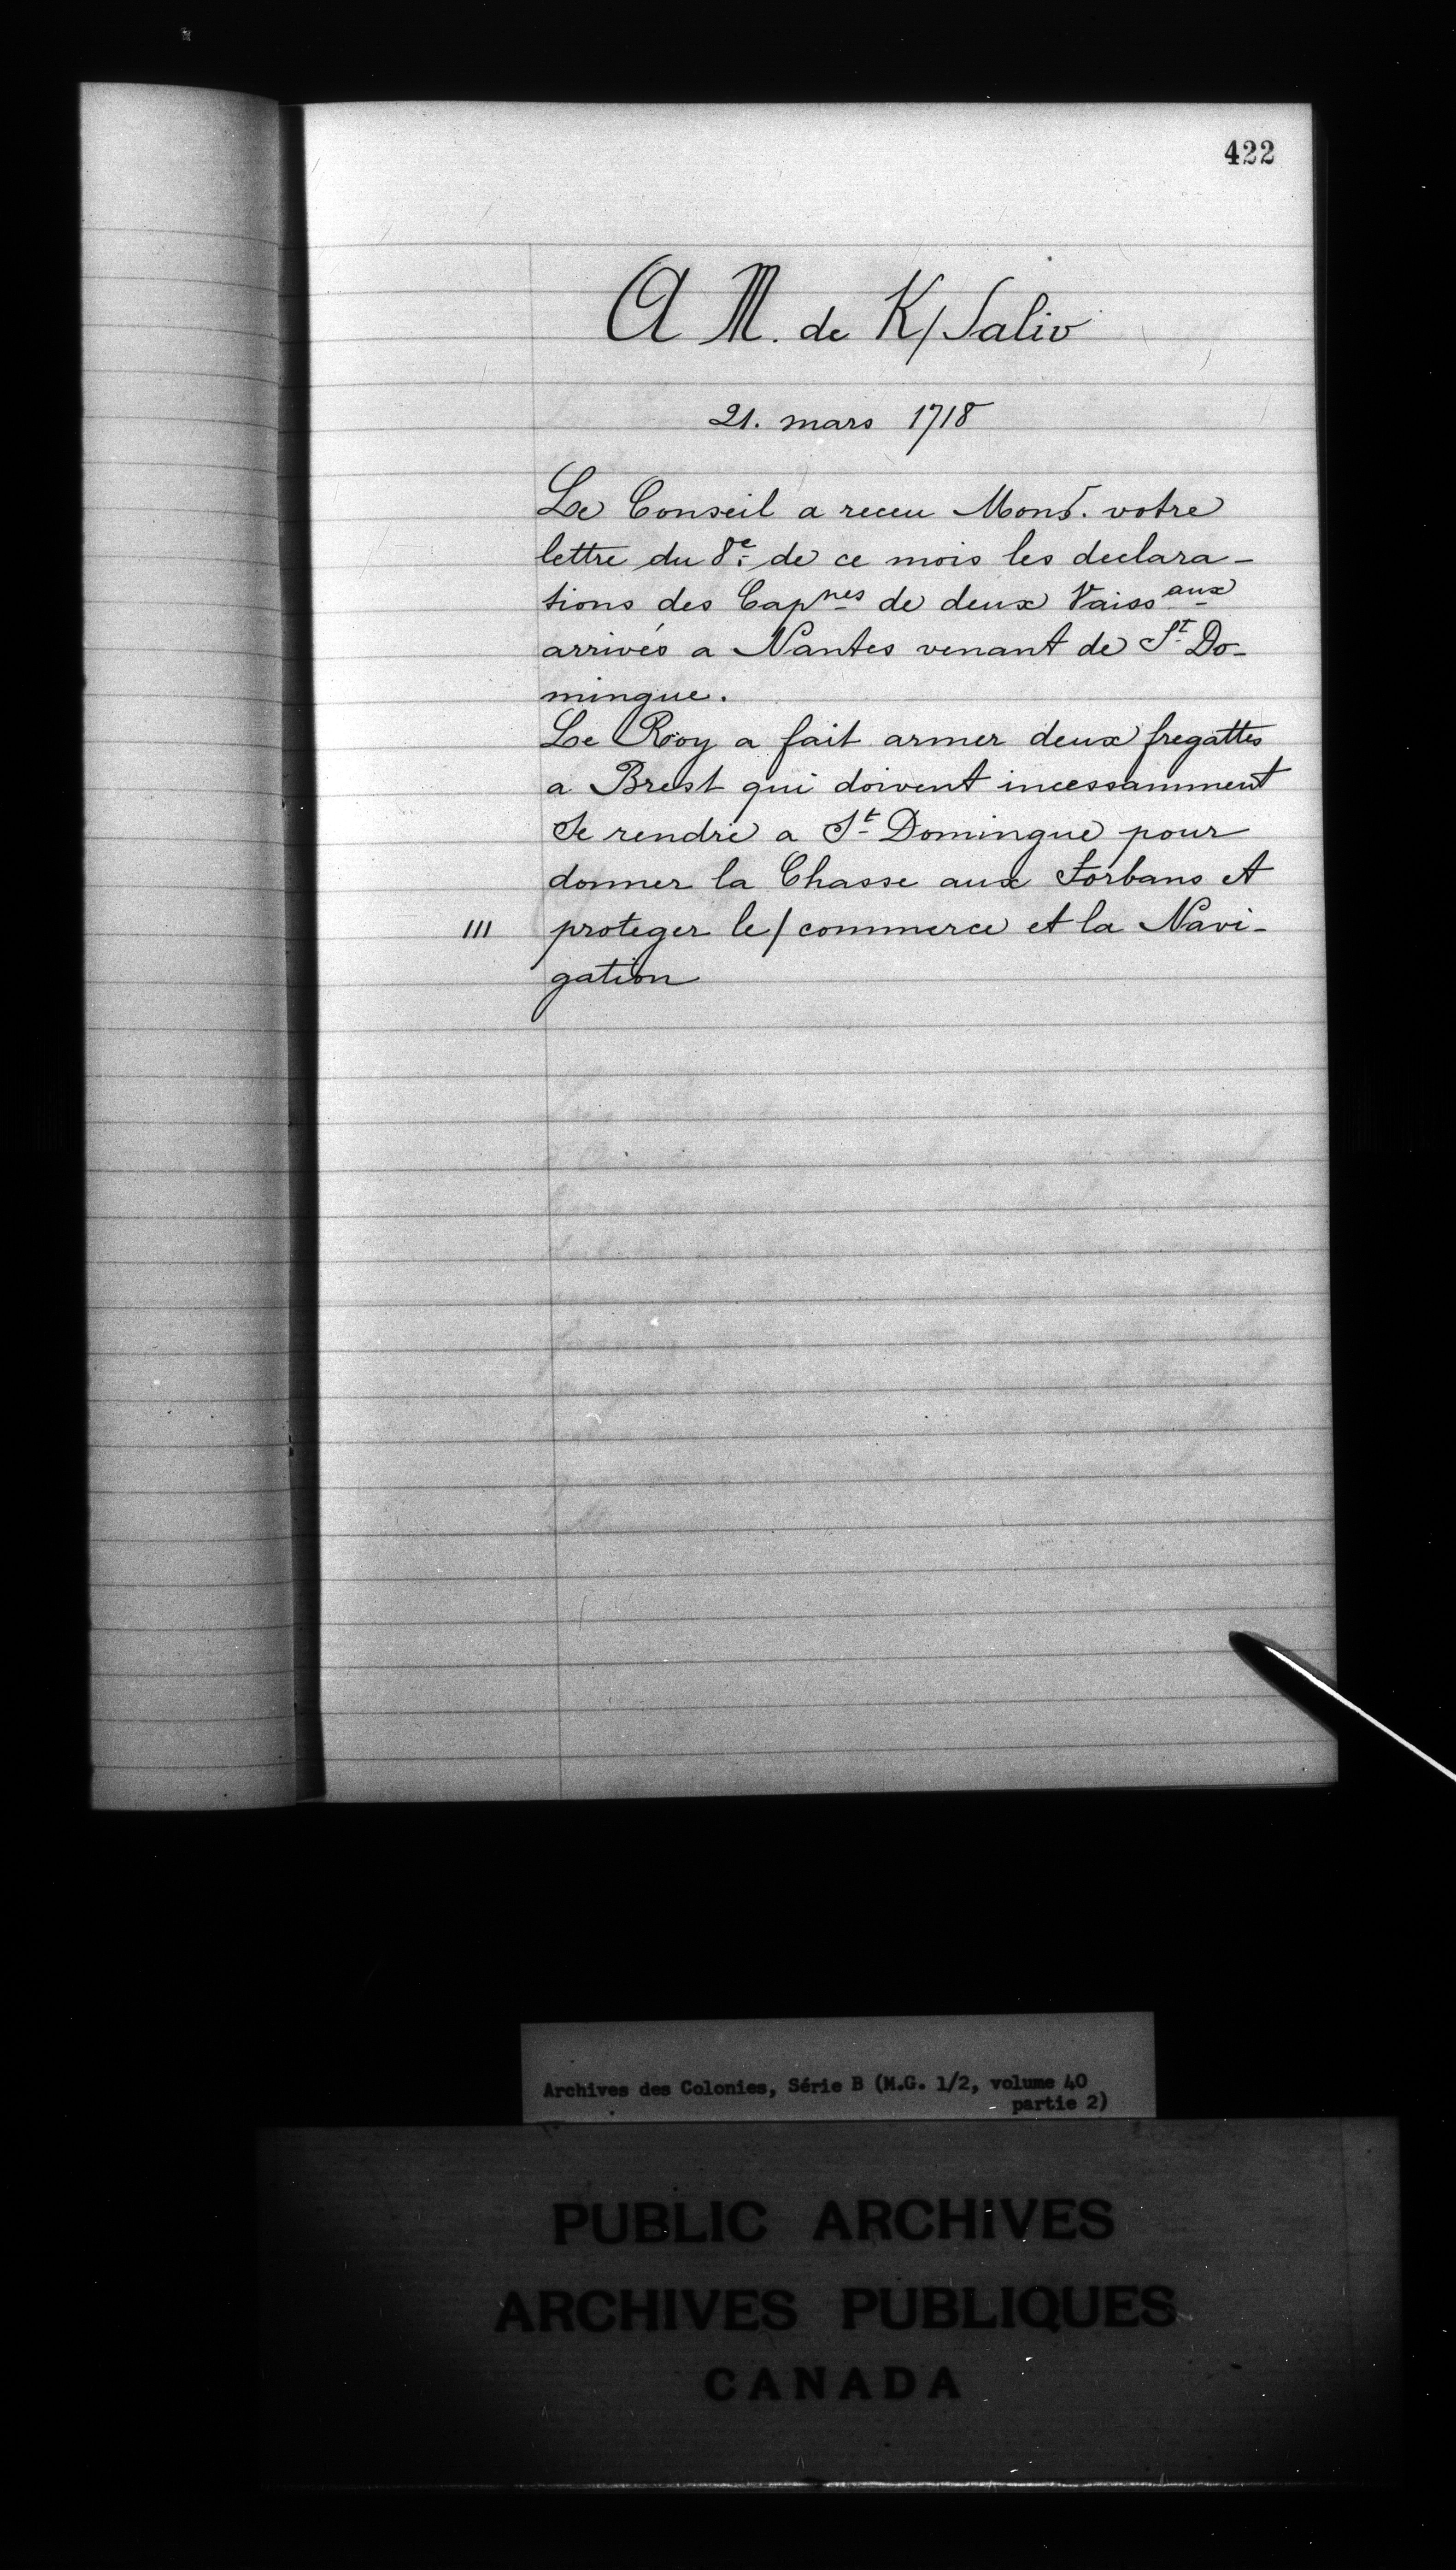 422
A M. de K/Salio
21. mars 1718
Le Conseil a receu Monsr. votre
lettre du 8e. de ce mois les declara-
tions des Capnes de deux Vaissaux
arrivés a Nantes venant de St Do-
mingue.
Le Roy a fait armer deux fregattes
a Brest qui doivent incessamment
Se rendre a St Domingue pour
donner la Chasse aux Forbans et
111 proteger le/commerce et la Navi-
gation
Archives des Colonies, Série B (M.G. 1/2, volume 40
partie 2)
PUBLIC ARCHIVES
ARCHIVES PUBLIQUES
CANADA